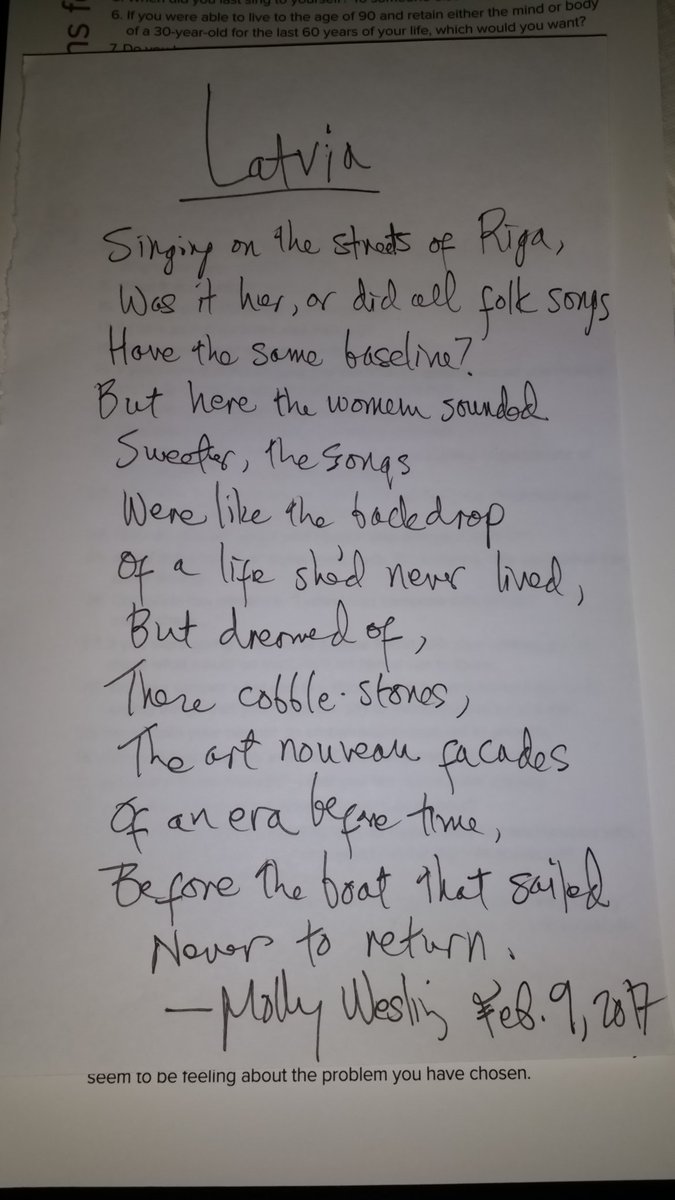 6. If you were able to live to the age of 90 and retain either the mind or body
of a 30-year-old for the last 60 years of your life, which would you want?
Latvia
Singing on the streets of Riga,
Was it her, or did all folk songs
Have the same baseline?
But here the women sounded
Sweeter, the songs
Were like the backdrop
Of a life she'd never lived,
But dreamed of,
These cobble-stones,
The art nouveau facades
Of an era before time,
Before the boat that sailed
Never to return.
—Molly Wesling Feb. 9, 2017
seem to be feeling about the problem you have chosen.